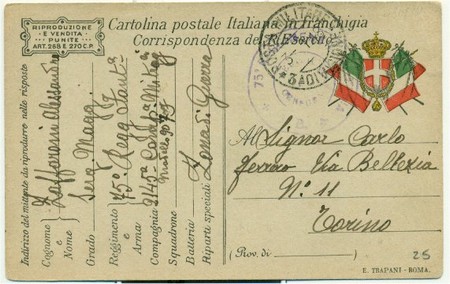 RIPRODUZIONE
E VENDITA
PUNITE
ART. 285 E 270 C.P.
Cartolina postale Italiana in franchigia
Corrispondenza del R. Esercito
POSTA MILITARE
3ª DIVIS
75
Indirizzo del mittente da riprodurre nelle risposte
Cognome e Nome Zaffarassi Alessandro
Grado Serg. Magg.
Reggimento e Arma 75° Regg Fant
Compagnia 2145ª Comp Mitrag
Squadrone
Batteria
Riparti speciali Zona di Guerra
Al Signor Carlo
Ferraro Via Bellezia
N. 11
Torino
(Prov. di
25
E. TRAPANI - ROMA.